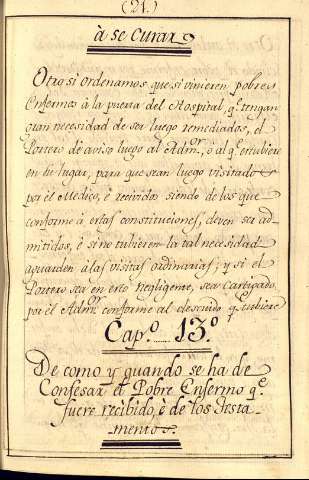 (21.)
à se Curar
Otro si ordenamos que si vinieren pobres
Enfermos à la puerta del Hospital, q.e tengan
gran necesidad de ser luego remediados, el
Portero de aviso luego al Adm.or, ò al q.e estubiere
en su lugar, para que sean luego visitados
por el Medico, è recividos siendo de los que
conforme à estas constituciones, deven ser ad-
mitidos, è si no tubieren la tal necesidad
aguarden à las visitas ordinarias; y si el
Portero sea en esto negligente, sea Castigado
por el Adm.or conforme al descuido q.e tubiere
Cap.o 13.o
De como y quando se ha de
Confesar el Pobre Enfermo q.e
fuere recibido, è de los Testa-
mentos.